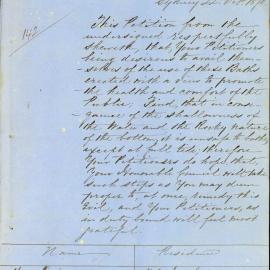 Sydney 22 Oct 18
142
This Petition from the
undersigned respectfully
sheweth, that, Your Petitioners
being desirous to avail them-
-selves of the use of these Baths
created with a view to promote
the health and comfort of the
Public. Find, that in conse-
-quence of the shallowness of
the Water and the Rocky nature
of the bottom, it is unfit to bathe
except at full tide, therefore
Your Petitioners do hope that,
Your Honorable Council will take
such steps as You may deem
proper to, at once, remedy this
Evil, and Your Petitioners, as
in duty bound will feel most
grateful.
Name Residence